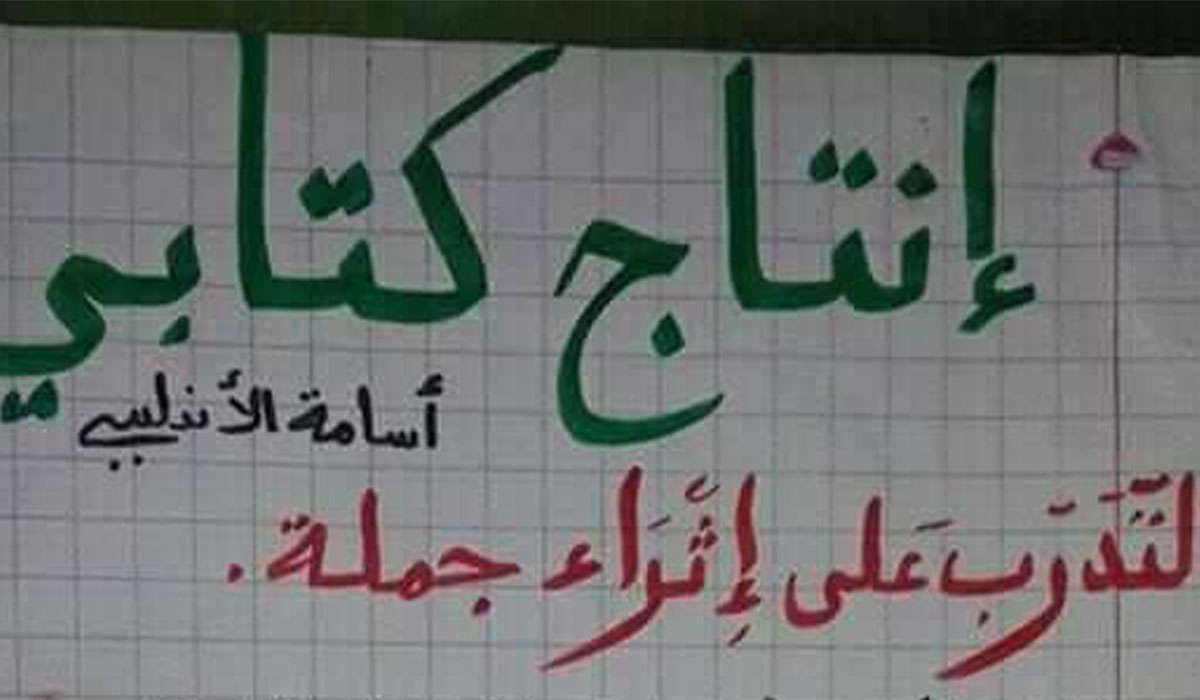 إنتاج كتابي
أسامة الأندلسي
لتَّدَرّب عَلى إِثْرَاء جملة.